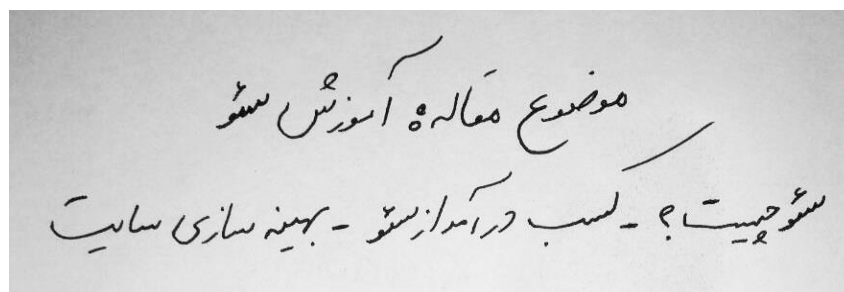 موضوع مقاله: آموزش سئو
سئو چیست؟ - کسب درآمد از سئو - بهینه سازی سایت